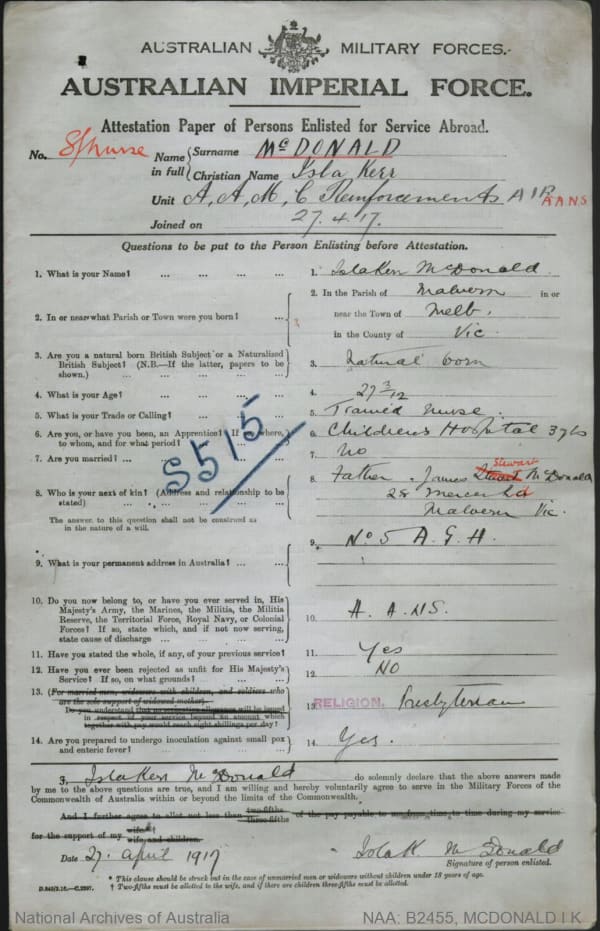 AUSTRALIAN MILITARY FORCES.
AUSTRALIAN IMPERIAL FORCE.
Attestation Paper of Persons Enlisted for Service Abroad.
No. S/Nurse Name in full Surname McDONALD
Christian Name Isla Kerr
Unit A.A.M.C Reinforcements AIF AANS
Joined on 27.4.17.
Questions to be put to the Person Enlisting before Attestation.
1. What is your Name? ... ... ... 1. Isla Kerr McDonald
2. In or near what Parish or Town were you born? ... 2. In the Parish of Malvern in or
near the Town of Melb.
in the County of Vic.
3. Are you a natural born British Subject or a Naturalized British Subject? (N.B.—If the latter, papers to be shown.) ... ... 3. Natural born
4. What is your Age? ... ... ... 4. 27 3/12
5. What is your Trade or Calling? ... ... 5. Trained Nurse.
6. Are you, or have you been, an Apprentice? If so, where, to whom, and for what period? ... 6. Childrens Hospital 3 yrs
7. Are you married? ... ... ... 7. No
8. Who is your next of kin? (Address and relationship to be stated) ... ... ... 8. Father. James Stewart McDonald
28 Mercer Rd
Malvern Vic.
The answer to this question shall not be construed as in the nature of a will.
S515
9. What is your permanent address in Australia? ... 9. No 5 A.G.H.
10. Do you now belong to, or have you ever served in, His Majesty's Army, the Marines, the Militia, the Militia Reserve, the Territorial Force, Royal Navy, or Colonial Forces? If so, state which, and if not now serving, state cause of discharge ... ... 10. A.A.N.S.
11. Have you stated the whole, if any, of your previous service? 11. Yes
12. Have you ever been rejected as unfit for His Majesty's Service? If so, on what grounds? ... 12. NO
13. (For married men, widowers with children, and soldiers who are the sole support of widowed mother—
Do you understand that no separation allowance will be issued in respect of your service beyond an amount which together with pay would reach eight shillings per day? 13. RELIGION. Presbyterian
14. Are you prepared to undergo inoculation against small pox and enteric fever? ... ... 14. Yes.
I, Isla Kerr McDonald do solemnly declare that the above answers made
by me to the above questions are true, and I am willing and hereby voluntarily agree to serve in the Military Forces of the
Commonwealth of Australia within or beyond the limits of the Commonwealth.
And I further agree to allot not less than two-fifths three-fifths of the pay payable to me from time to time during my service
for the support of my wife † wife and children.
Date 27 April 1917 Isla K McDonald
Signature of person enlisted.
* This clause should be struck out in the case of unmarried men or widowers without children under 18 years of age.
† Two-fifths must be allotted to the wife, and if there are children three-fifths must be allotted.
National Archives of Australia NAA: B2455, MCDONALD I K